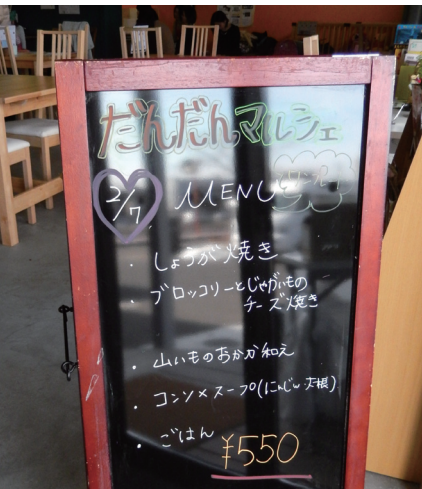 だんだんマルシェ
2/7
MENU
・しょうが焼き
・ブロッコリーとじゃがいもの
チーズ焼き
・山いものおかか和え
・コンソメスープ(にんじん・大根)
・ごはん
¥550